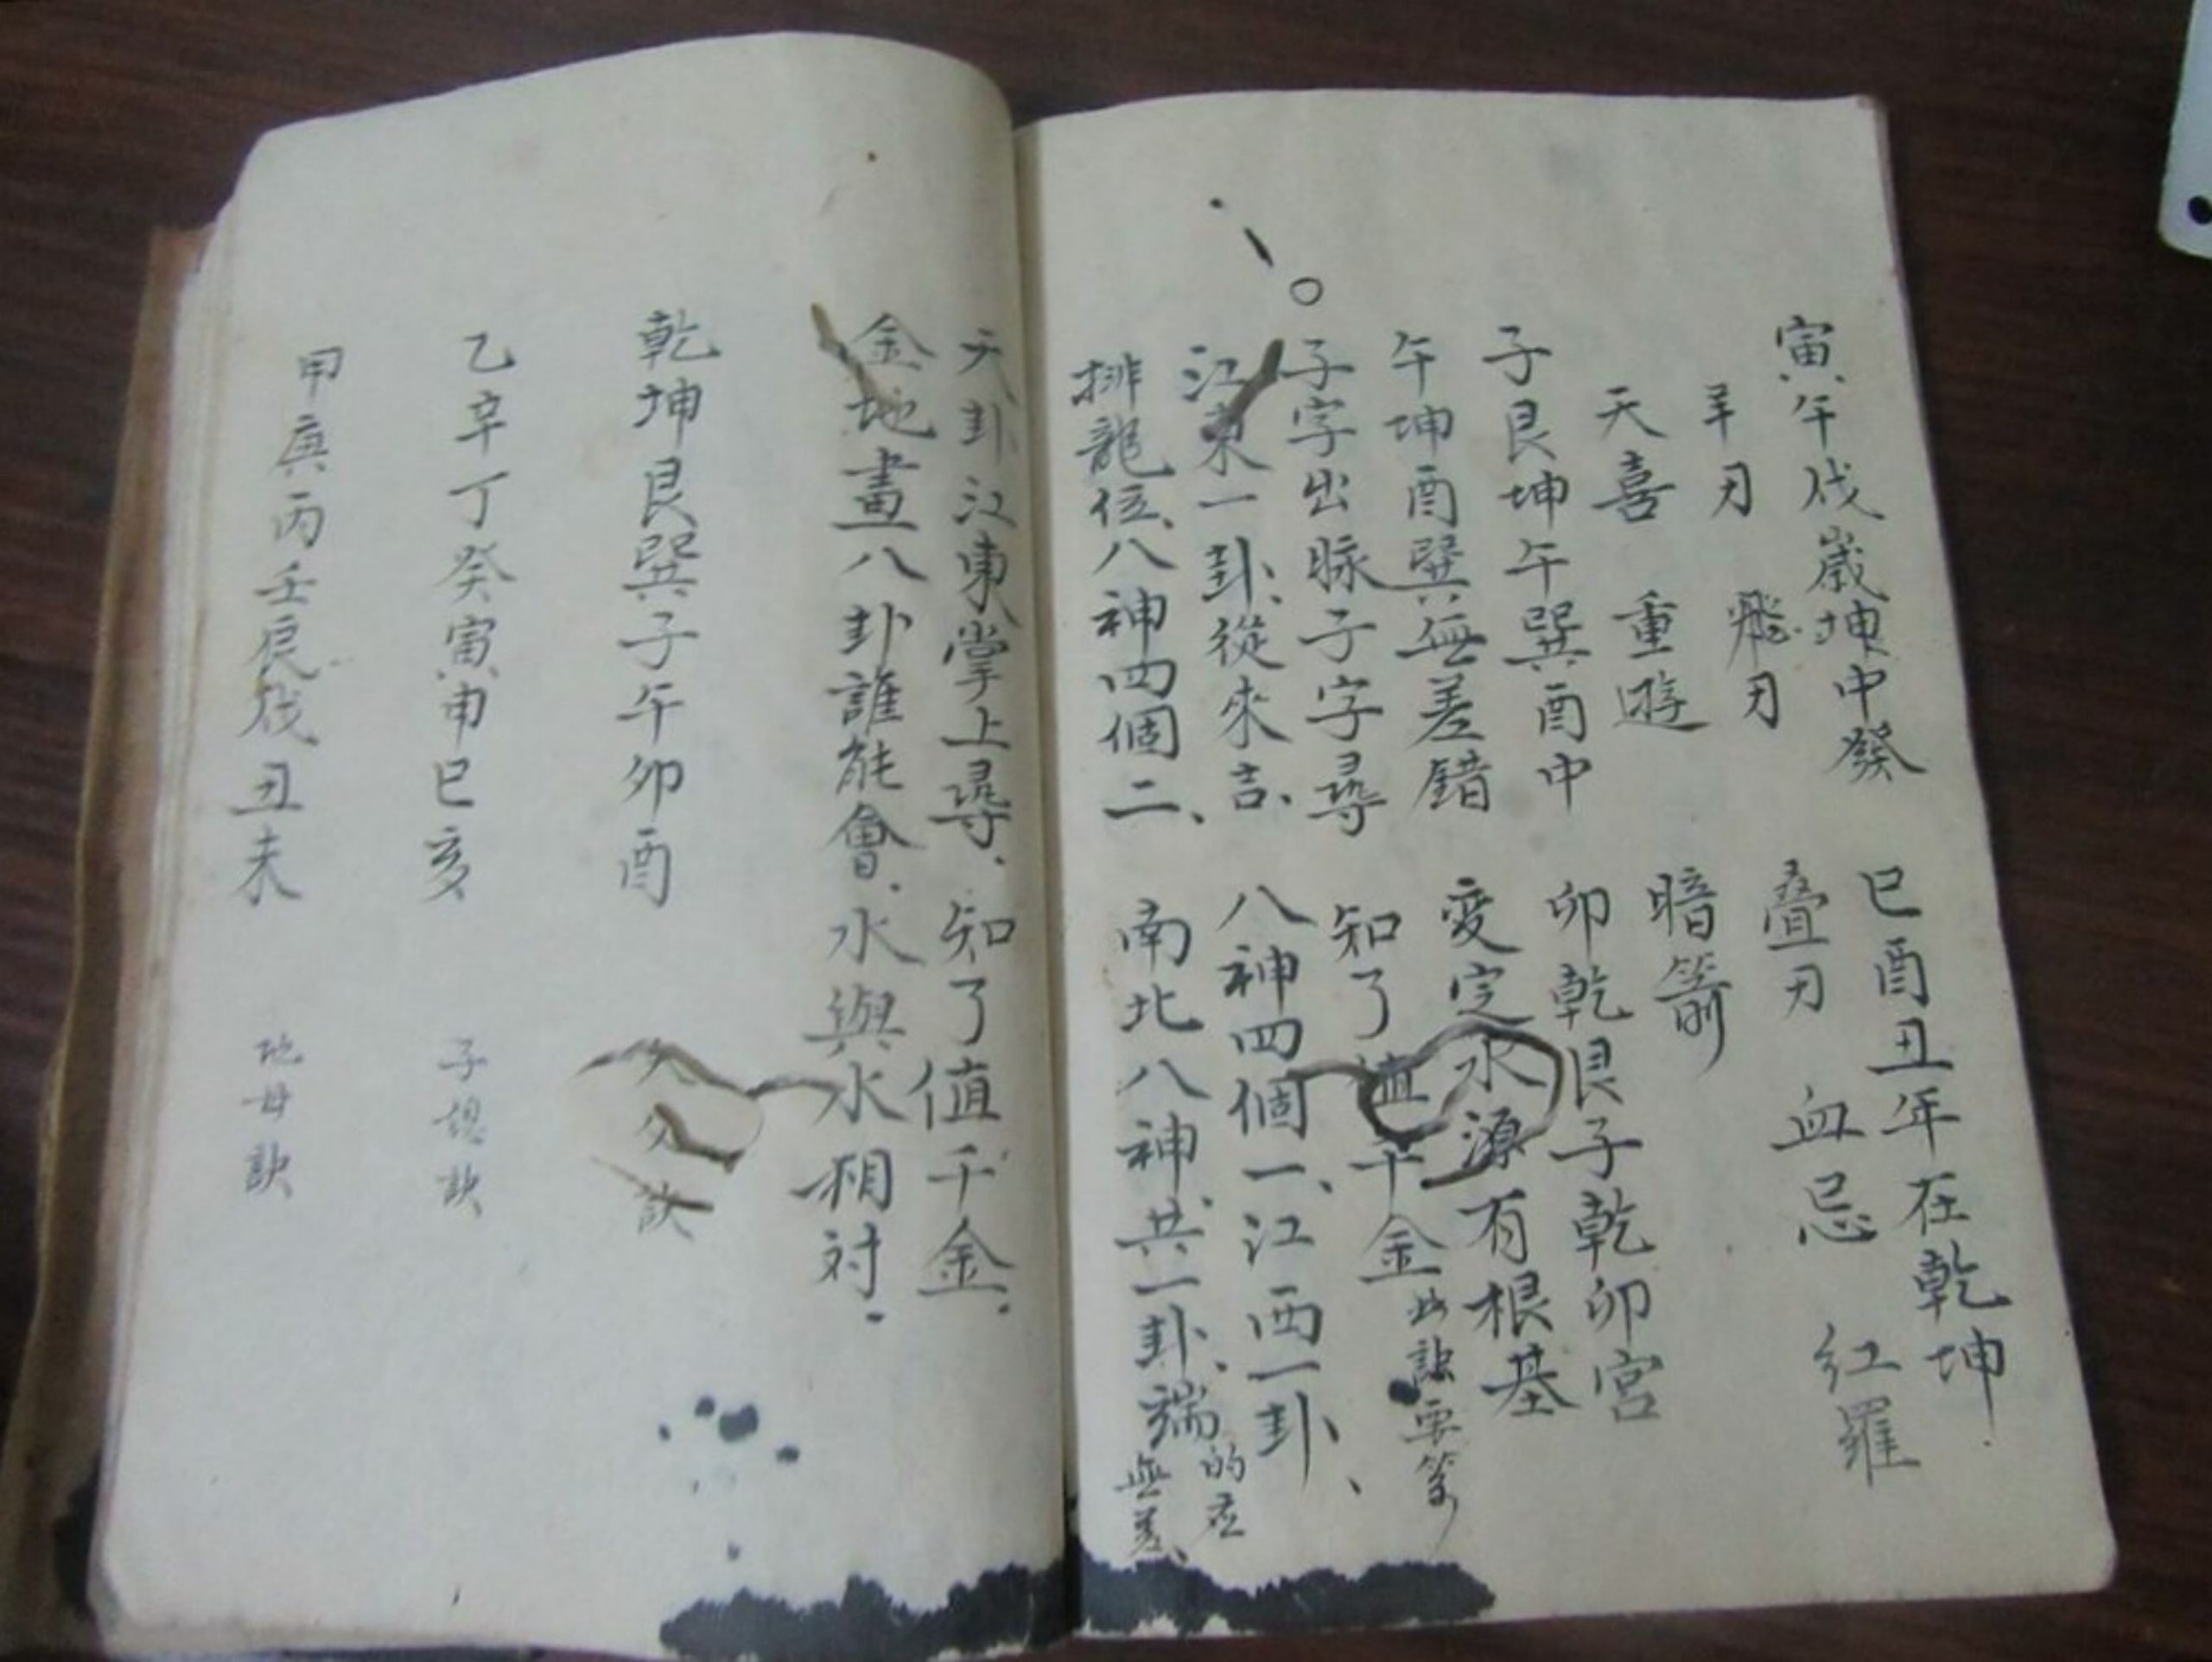 寅午戌歲坤中癸 巳酉丑年在乾坤
羊刃 飛刃 疊刃 血忌 紅羅
天喜 重遊 暗箭
子艮坤午巽酉中 卯乾艮子乾卯宮
午坤酉巽無差錯 变定水源有根基
子字出脉子字尋 知了值千金 此訣要
江東一卦、從來吉、八神四個一、江西一卦、
排龍位、八神四個二、南北八神、共一卦、端的应無差、
天卦江東掌上尋、知了值千金、
金地畫八卦誰能會、水與水相対、
乾坤艮巽子午卯酉 訣
乙辛丁癸寅申巳亥 子 訣
甲庚丙壬辰戌丑未 地母訣